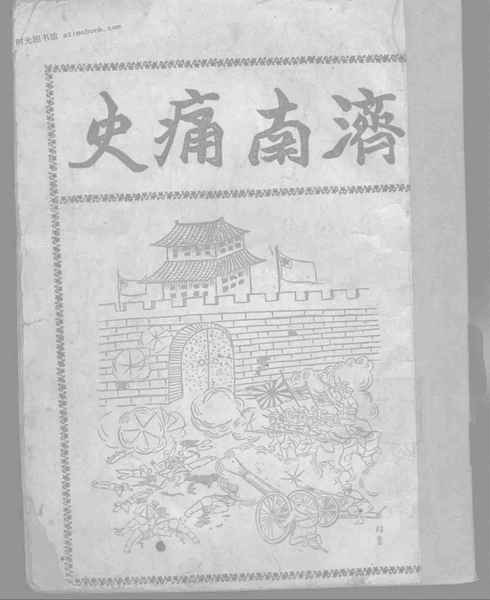 时光图书馆 atimebook.com
濟南痛史